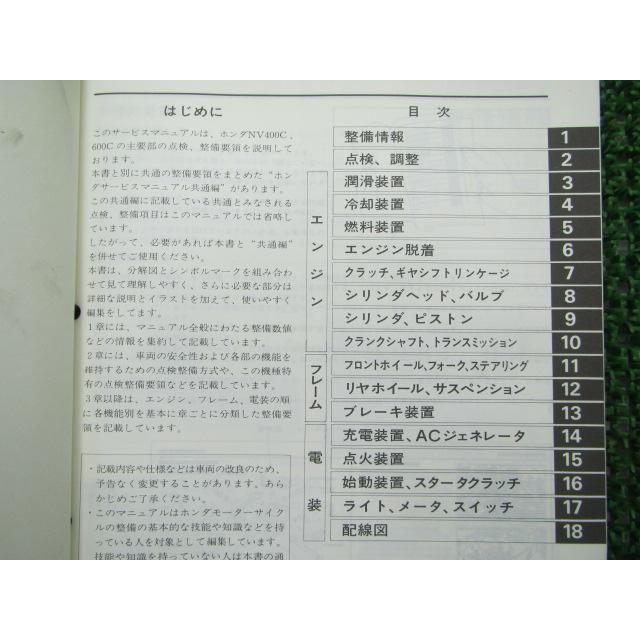 はじめに
このサービスマニュアルは、ホンダNV400C、
600Cの主要部の点検、整備要領を説明して
おります。
本書と別に共通の整備要領をまとめた“ホン
ダサービスマニュアル共通編”があります。
この共通編に記載している共通とみなされる
点検、整備項目はこのマニュアルでは省略し
ています。
したがって、必要があれば本書と“共通編”
を併せてご使用ください。
本書は、分解図とシンボルマークを組み合わ
せて見て理解しやすく、さらに必要な部分は
詳細な説明とイラストを加えて、使いやすく
編集をしてます。
1章には、マニュアル全般にわたる整備数値
などの情報を集約して記載しています。
2章には、車両の安全性および各部の機能を
維持するための点検整備方式や、この機種特
有の点検整備要領などを記載しています。
3章以降は、エンジン、フレーム、電装の順
に各機能別を基本に章ごとに分類した整備要
領を記載しています。
・記載内容や仕様などは車両の改良のため、
予告なく変更することがあります。あら
かじめご了承ください。
・このマニュアルはホンダモーターサイク
ルの整備の基本的な技能や知識などを持
っている人を対象として編集しています。
技能や知識を持っていない人は本書の通
目次
整備情報 1
点検、調整 2
エンジン
潤滑装置 3
冷却装置 4
燃料装置 5
エンジン脱着 6
クラッチ、ギヤシフトリンケージ 7
シリンダヘッド、バルブ 8
シリンダ、ピストン 9
クランクシャフト、トランスミッション 10
フレーム
フロントホイール、フォーク、ステアリング 11
リヤホイール、サスペンション 12
ブレーキ装置 13
電装
充電装置、ACジェネレータ 14
点火装置 15
始動装置、スタータクラッチ 16
ライト、メータ、スイッチ 17
配線図 18